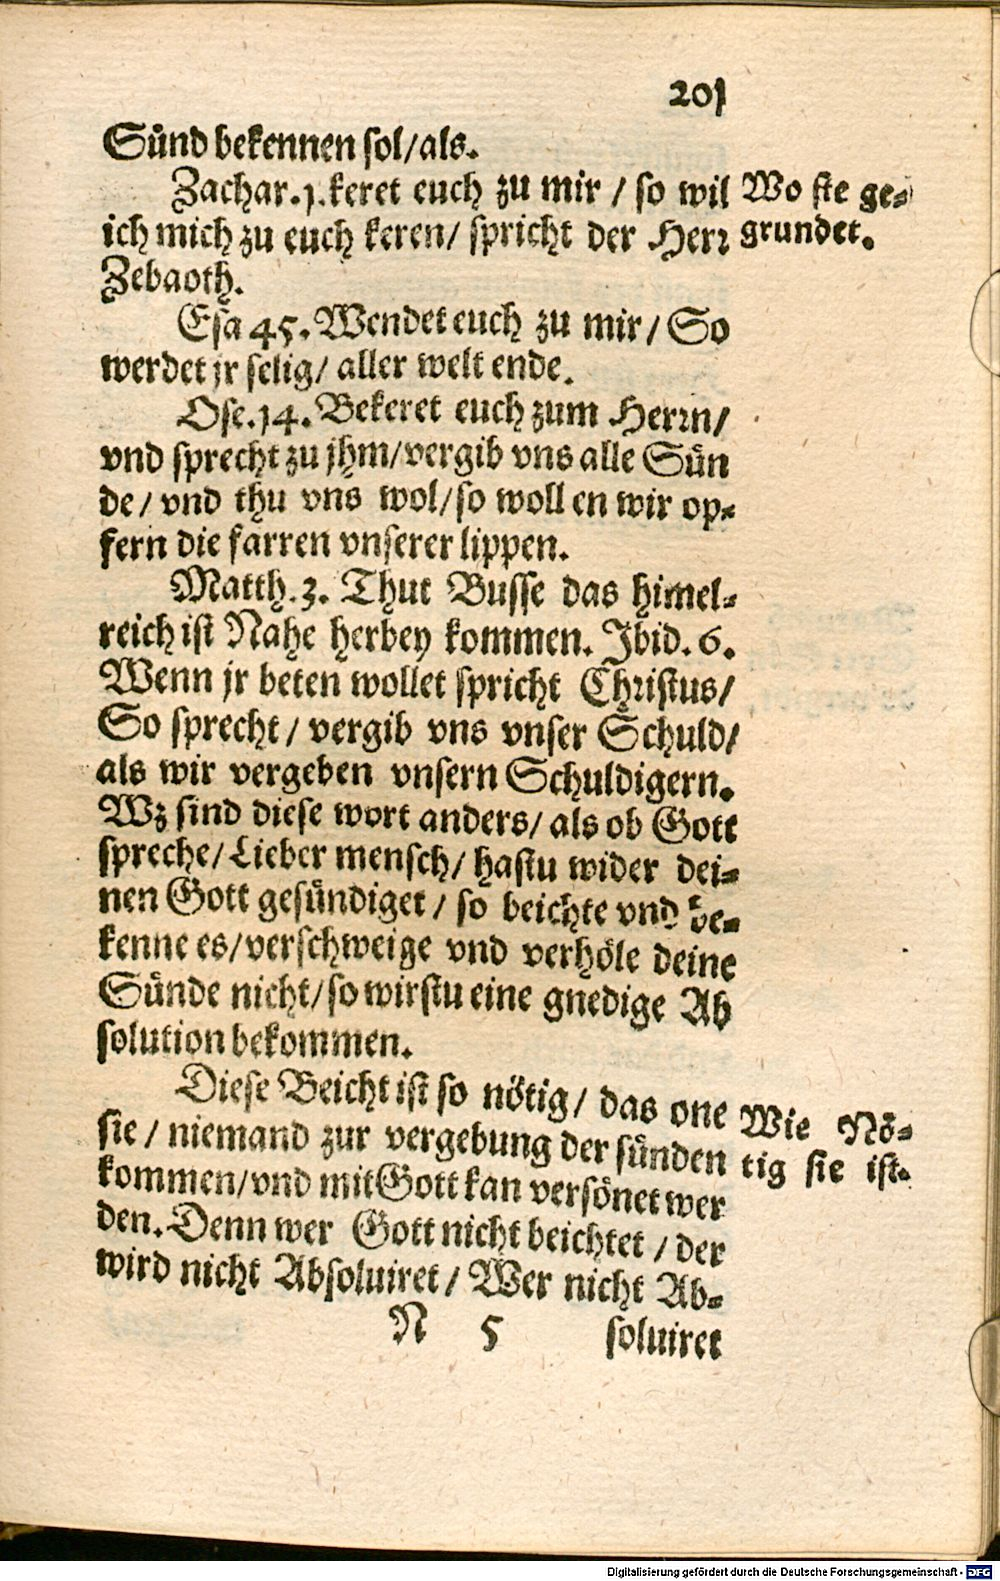 201
Sünd bekennen sol/als.
Zachar.1.keret euch zu mir / so wil
ich mich zu euch keren/ spricht der Herr
Zebaoth.
Wo sie ge-
grundet.
Esa 45. Wendet euch zu mir/ So
werdet jr selig/ aller welt ende.
Ose.14. Bekeret euch zum Herrn/
vnd sprecht zu jhm/vergib vns alle Sün
de/ vnd thu vns wol/so woll en wir op-
fern die farren vnserer lippen.
Matth.3. Thut Busse das himel-
reich ist Nahe herbey kommen. Ibid.6.
Wenn jr beten wollet spricht Christus/
So sprecht/ vergib vns vnser Schuld/
als wir vergeben vnsern Schuldigern.
Wz sind diese wort anders/ als ob Gott
spreche/ Lieber mensch/ hastu wider dei-
nen Gott gesündiget / so beichte vnd be-
kenne es/verschweige vnd verhöle deine
Sünde nicht/so wirstu eine gnedige Ab
solution bekommen.
Diese Beicht ist so nötig/ das one
sie / niemand zur vergebung der sünden
kommen/vnd mit Gott kan versönet wer
den. Denn wer Gott nicht beichtet / der
wird nicht Absoluiret/ Wer nicht Ab-
Wie Nö-
tig sie ist.
N 5 soluiret
Digitalisierung gefördert durch die Deutsche Forschungsgemeinschaft - DFG